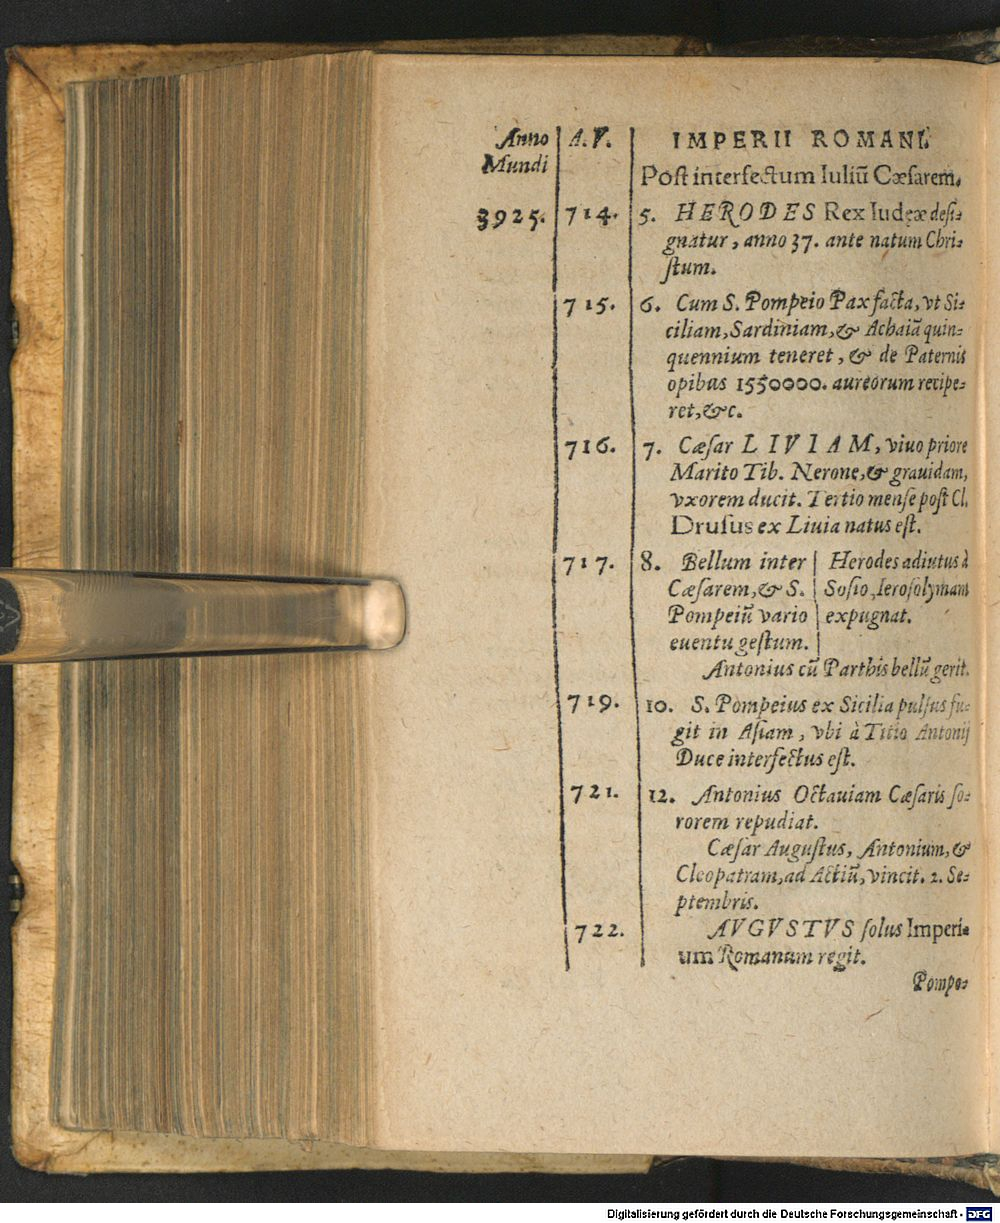 Anno | A. V. | IMPERII ROMANI.
Mundi | Post interfectum Iuliũ Cæsarem.
3925. | 714. | 5. HERODES Rex Iudęæ desi-
gnatur, anno 37. ante natum Chri-
stum.
715. | 6. Cum S. Pompeio Pax facta, vt Si-
ciliam, Sardiniam, & Achaiã quin-
quennium teneret, & de Paternis
opibus 1550000. aureorum recipe-
ret, &c.
716. | 7. Cæsar LIVIAM, viuo priore
Marito Tib. Nerone, & grauidam,
vxorem ducit. Tertio mense post Cl.
Drusus ex Liuia natus est.
717. | 8. Bellum inter | Herodes adiutus à
Cæsarem, & S. | Sosio, Ierosolymam
Pompeiũ vario | expugnat.
euentu gestum. |
Antonius cũ Parthis bellũ gerit.
719. | 10. S. Pompeius ex Sicilia pulsus fu-
git in Asiam, vbi à Titio Antonij
Duce interfectus est.
721. | 12. Antonius Octauiam Cæsaris so-
rorem repudiat.
Cæsar Augustus, Antonium, &
Cleopatram, ad Actiũ, vincit. 2. Se-
ptembris.
722. | AVGVSTVS solus Imperi-
um Romanum regit.
Pompe-
Digitalisierung gefördert durch die Deutsche Forschungsgemeinschaft - DFG